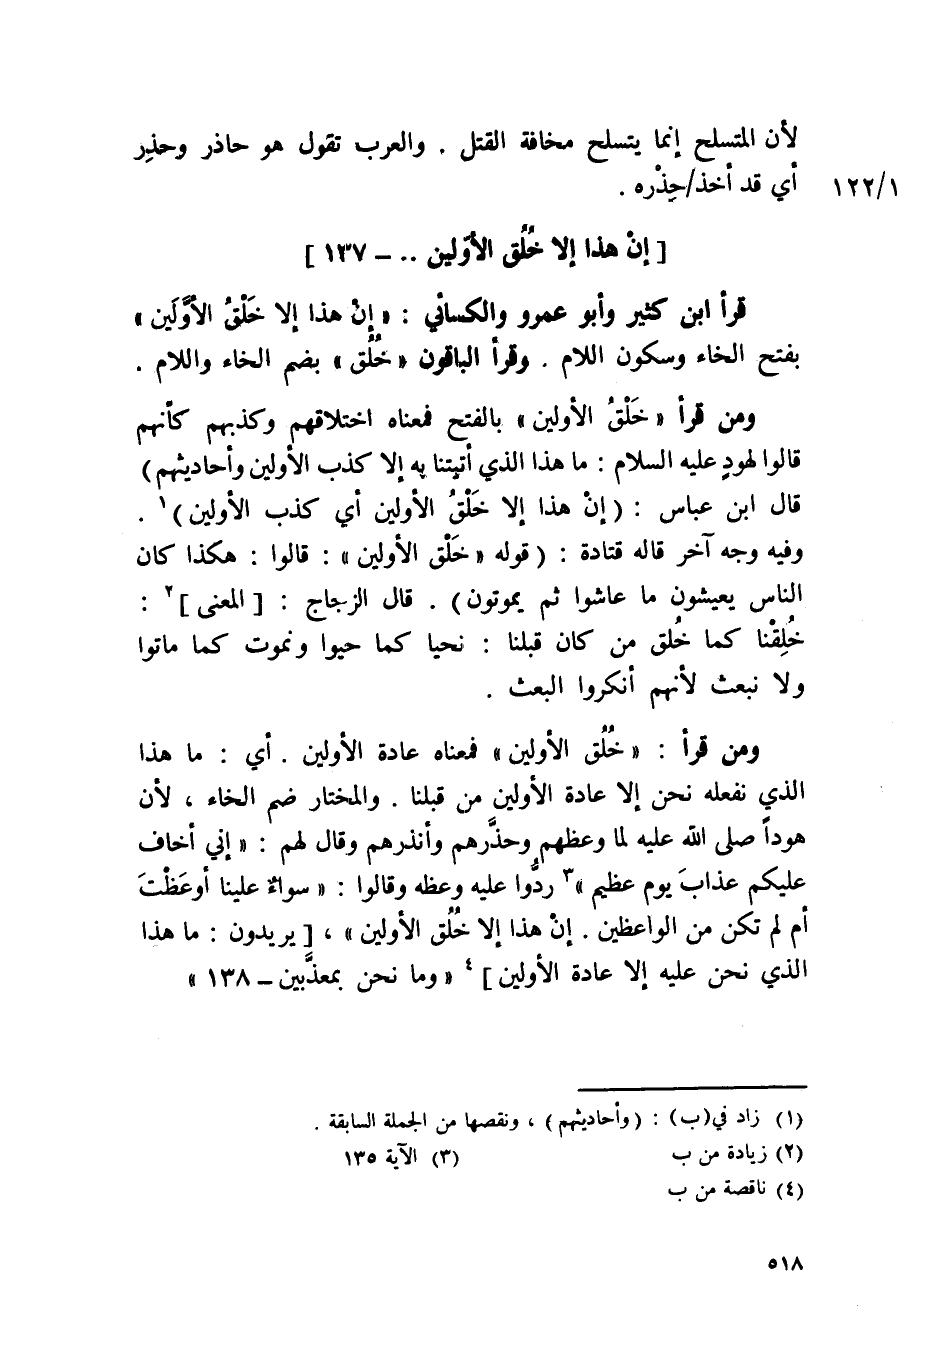 لأن المتسلح إنما يتسلح مخافة القتل . والعرب تقول هو حاذر وحذِر
أي قد أخذ/حِذْره . ١٢٢/١
[ إنْ هذا إلا خُلُق الأوّلين .. ــ ١٣٧ ]
قرأ ابن كثير وأبو عمرو والكسائي : « إنْ هذا إلا خَلْقُ الأوَّلَين »
بفتح الخاء وسكون اللام . وقرأ الباقون « خُلُق » بضم الخاء واللام .
ومن قرأ « خَلْقُ الأولين » بالفتح فمعناه اختلاقهم وكذبهم كأنهم
قالوا لهودٍ عليه السلام : ما هذا الذي أتيتنا به إلا كذب الأولين وأحاديثهم )
قال ابن عباس : ( إنْ هذا إلا خَلْقُ الأولين أي كذب الأولين )١ .
وفيه وجه آخر قاله قتادة : ( قوله « خَلْق الأولين » : قالوا : هكذا كان
الناس يعيشون ما عاشوا ثم يموتون ) . قال الزجاج : [ المعنى ]٢ :
خُلِقْنا كما خُلق من كان قبلنا : نحيا كما حيوا ونموت كما ماتوا
ولا نبعث لأنهم أنكروا البعث .
ومن قرأ : « خُلُق الأولين » فمعناه عادة الأولين . أي : ما هذا
الذي نفعله نحن إلا عادة الأولين من قبلنا . والمختار ضم الخاء ، لأن
هوداً صلى الله عليه لما وعظهم وحذَّرهم وأنذرهم وقال لهم : « إني أخاف
عليكم عذابَ يوم عظيم »٣ ردُّوا عليه وعظه وقالوا : « سواءٌ علينا أوعَظْتَ
أم لم تكن من الواعظين . إنْ هذا إلا خُلُق الأولين » ، [ يريدون : ما هذا
الذي نحن عليه إلا عادة الأولين ]٤ « وما نحن بمعذَّبين ــ ١٣٨ »
(١) زاد في (ب) : ( وأحاديثهم ) ، ونقصها من الجملة السابقة .
(٢) زيادة من ب (٣) الآية ١٣٥
(٤) ناقصة من ب
٥١٨